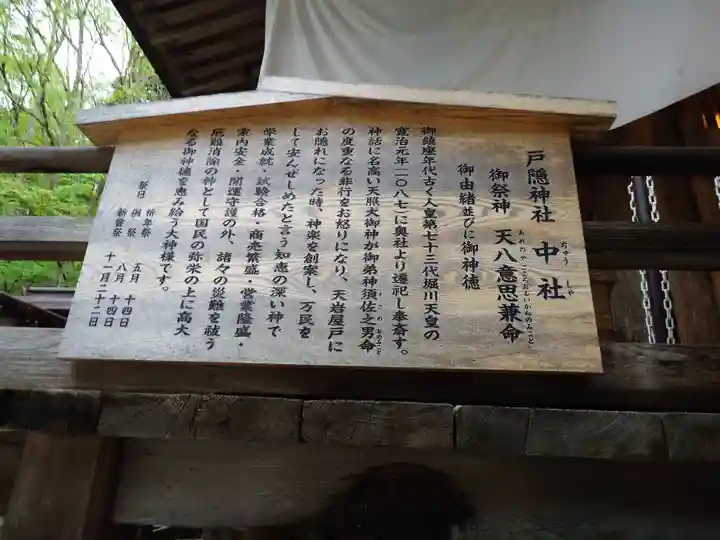 戸隠神社 中社
ちゅうしゃ
御祭神 天八意思兼命
あめのやごころおもいかねのみこと
御由緒並びに御神徳
御鎮座年代古く人皇第七十三代堀川天皇の
寛治元年(一〇八七)に奥社より遷祀し奉斎す。
神話に名高い天照大御神が御弟神須佐之男命
すさのおのみこと
の度重なる非行をお怒りになり、天岩屋戸に
お隠れになった時、神楽を創案し、万民を
して安んぜしめたと言う知恵の深い神で
学業成就・試験合格・商売繁盛・営業隆盛・
家内安全・開運守護の外、諸々の災難を祓う
厄難消除の神として国民の弥栄の上に高大
なる御神徳を恵み給う大神様です。
祭日 祈年祭 五月 十四日
例祭 八月 十四日
新嘗祭 十一月二十二日